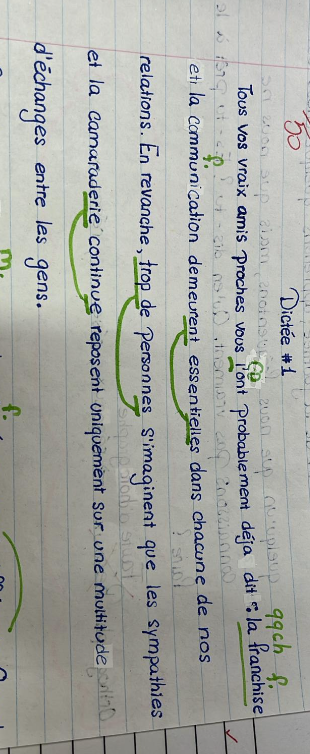 50
Dictée #1
qqch f.
Tous vos vraix amis proches vous l'ont probablement déja dit : la franchise
f.
et la communication demeurent essentielles dans chacune de nos
relations. En revanche, trop de personnes s'imaginent que les sympathies
et la camaraderie continue reposent uniquement sur une multitude
d'échanges entre les gens.
m. f.